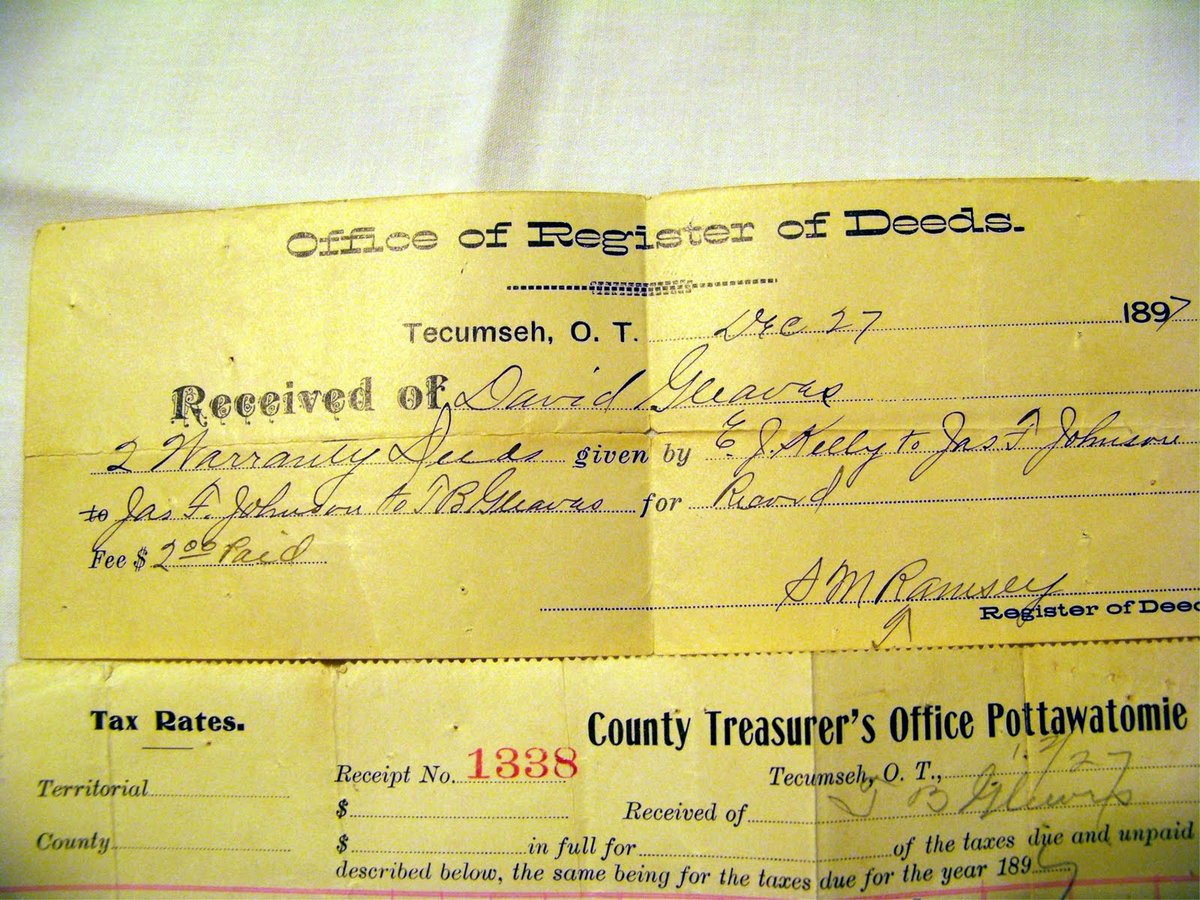 Office of Register of Deeds.
Tecumseh, O. T. Dec 27 1897
Received of David Gleaves
2 Warranty Deeds given by E J Kelly to Jas F Johnson
to Jas F. Johnson to T B Gleaves for Record
Fee $ 2 00 Paid
S M Ramsey
Register of Deed
Tax Rates.
County Treasurer's Office Pottawatomie
Receipt No. 1338
Tecumseh, O. T., 12/27
Territorial
$ Received of T B Gleaves
County
$ in full for of the taxes due and unpaid
described below, the same being for the taxes due for the year 189